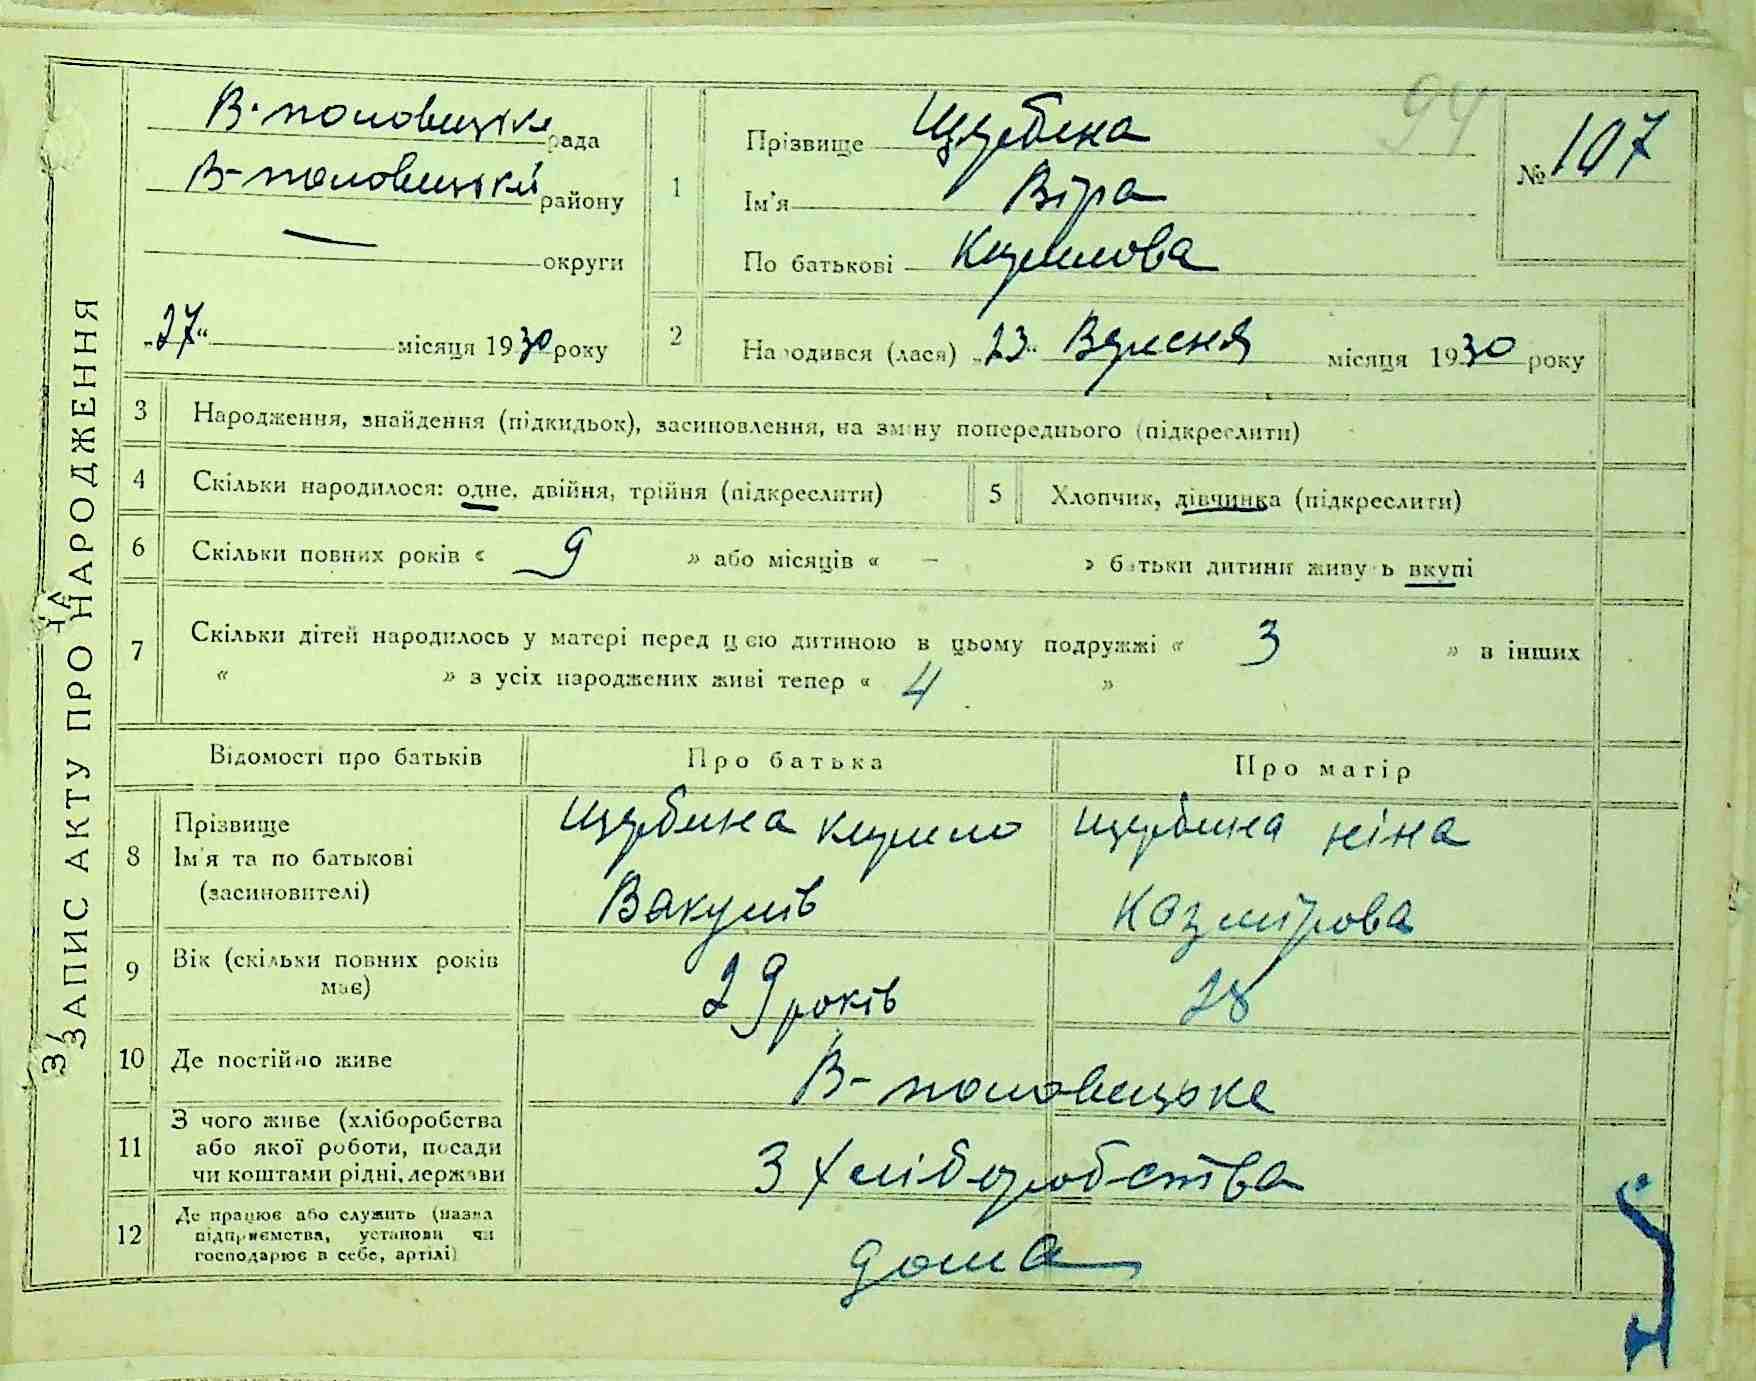 ЗАПИС АКТУ ПРО НАРОДЖЕННЯ
94
В-половецька рада
В-половецький району
— округи
„27“ місяця 1930 року
1
Прізвище Щербина
Ім'я Віра
По батькові Кирилова
№ 107
2
Народився (лася) „23“ Вересня місяця 1930 року
3 Народження, знайдення (підкидьок), засиновлення, на зміну попереднього (підкреслити)
4 Скільки народилося: одне, двійня, трійня (підкреслити)
5 Хлопчик, дівчинка (підкреслити)
6 Скільки повних років « 9 » або місяців « – » батьки дитини живуть вкупі
7 Скільки дітей народилось у матері перед цією дитиною в цьому подружжі « 3 » в інших
« » з усіх народжених живі тепер « 4 »
Відомості про батьків Про батька Про матір
8
Прізвище
Ім'я та по батькові
(засиновителі)
Щербина Кирило
Вакулів
Щербина Ніна
Козмірова
9 Вік (скільки повних років
має)
29 років
28
10 Де постійно живе
В-половецьке
11 З чого живе (хліборобства
або якої роботи, посади
чи коштами рідні, держави
З хліборобства
12 Де працює або служить (назва
підприємства, установи чи
господарює в себе, артілі)
дома